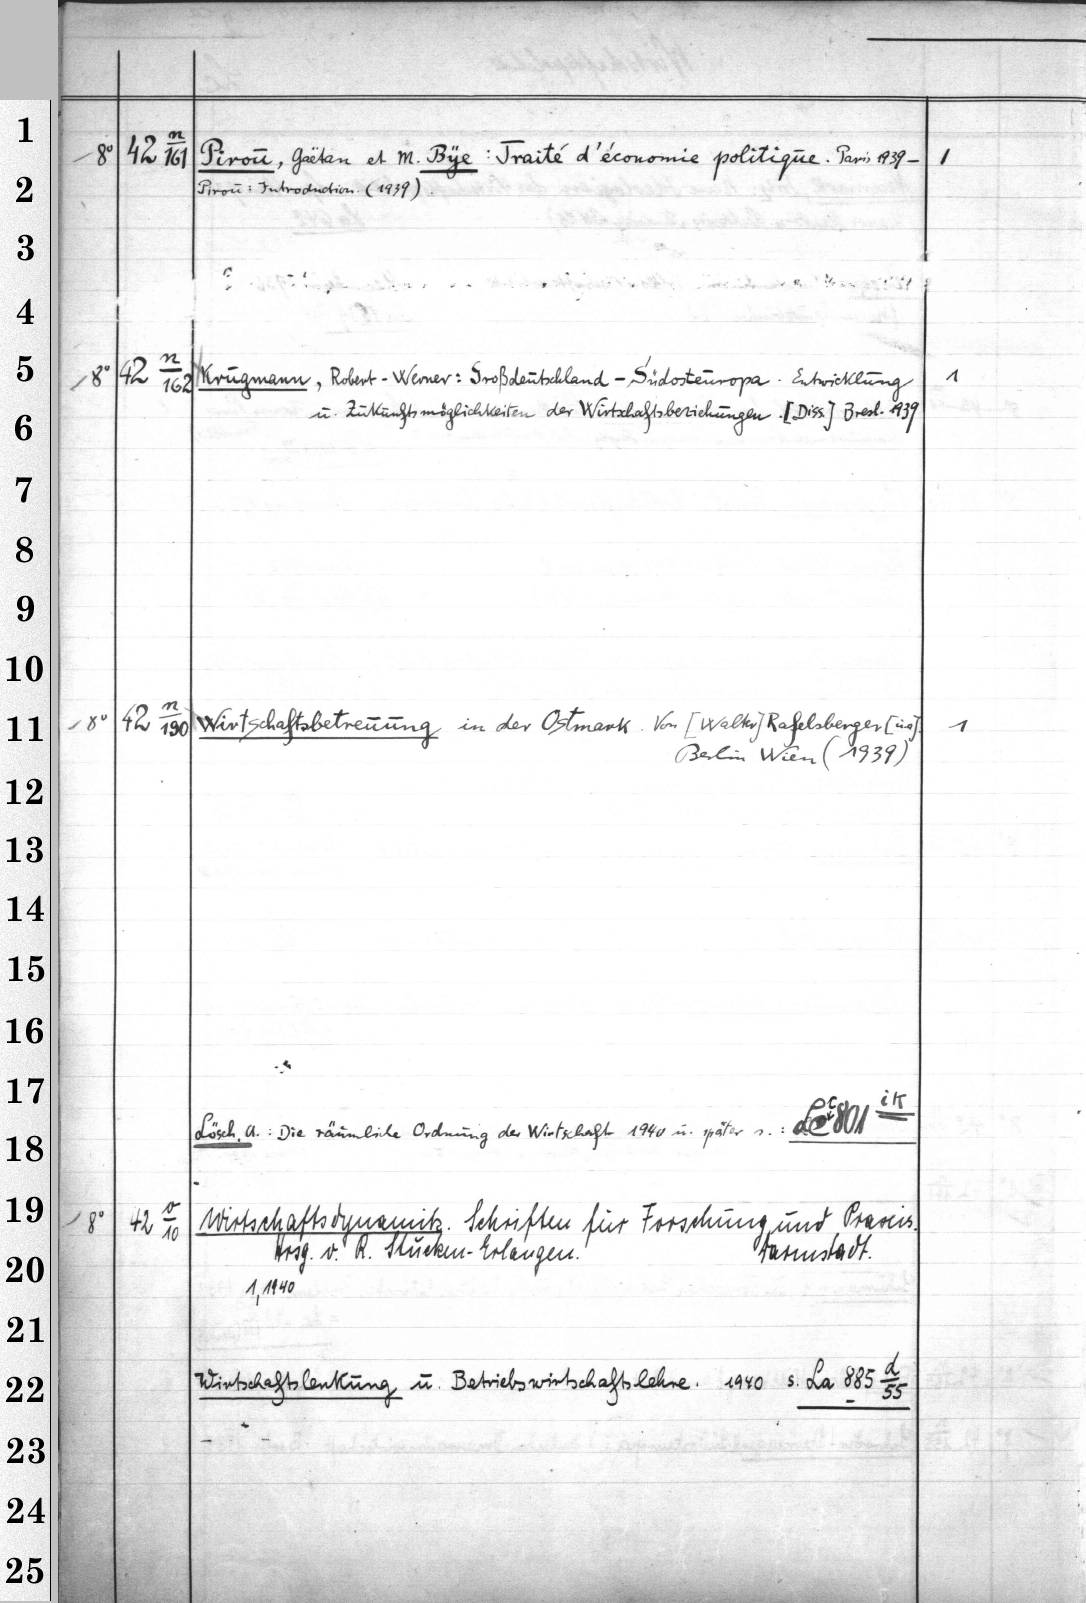 1
8° 42 n/161 Piroū, Gaëtan et M. Bÿe : Traité d'économie politiqūe. Paris 1939– 1
2
Piroū: Introduction. (1939).
3
4
5
8° 42 n/162 Krūgmann, Robert-Werner: Großdeūtschland – Südosteūropa. Entwicklūng 1
6
ū. Zūkūnftsmöglichkeiten der Wirtschaftsbeziehūngen. [Diss.] Bresl. 1939
7
8
9
10
11
8° 42 n/190 Wirtschaftsbetreūūng in der Ostmark. Von [Walter] Rafelsberger [ū.a.]. 1
Berlin Wien (1939)
12
13
14
15
16
17
18
Lösch, A.: Die räūmliche Ordnūng der Wirtschaft 1940 ū. später s.: 801 ik
19
8° 42 v/10 Wirtschaftsdynamik. Schriften für Forschung und Praxis.
Hrsg. v. R. Stucken-Erlangen. Darmstadt.
20
1,1940
21
22
Wirtschaftslenkūng ū. Betriebswirtschaftslehre. 1940 s. La 885 d/55
23
24
25